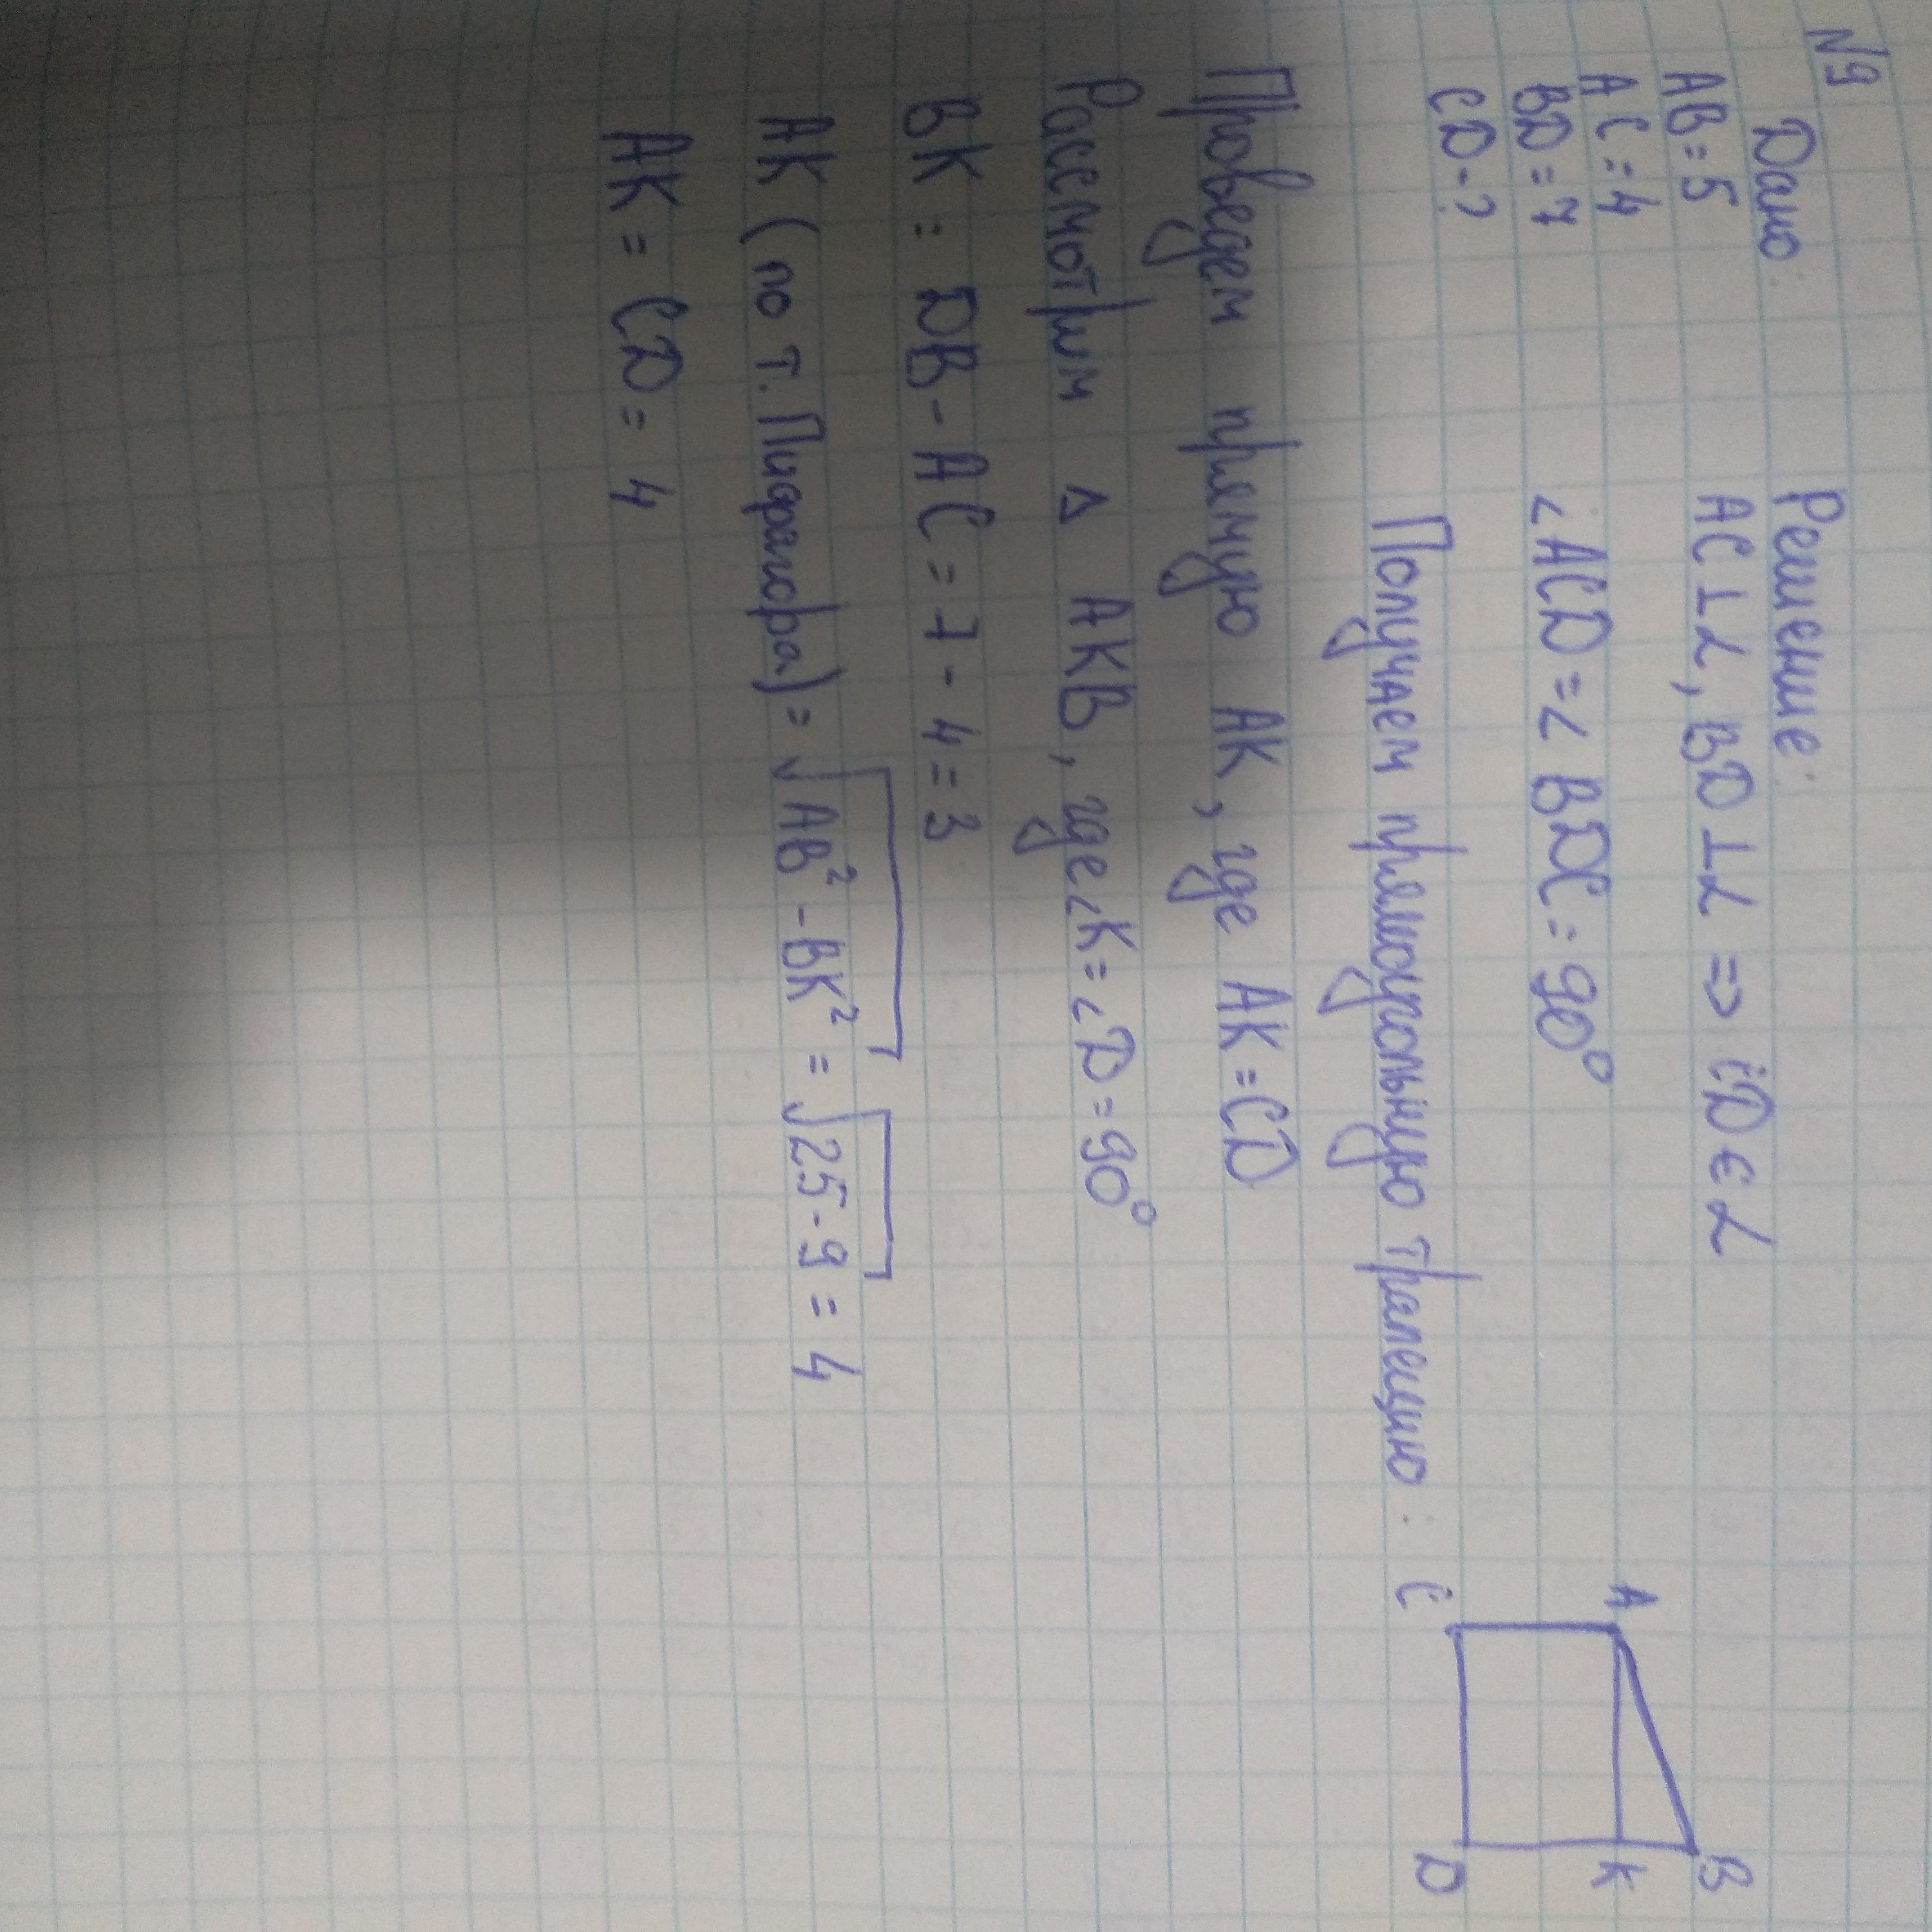 №9 Дано:
AB=5
AC=4
BD=7
CD-?
Решение:
AC⊥α, BD⊥α => CD∈α
∠ACD=∠BDC=90°
Получаем прямоугольную трапецию:
A
B
K
C
D
Проведем прямую AK, где AK=CD
Рассмотрим △ AKB, где∠K=∠D=90°
BK= DB-AC=7-4=3
AK (по т. Пифагора)=√AB²-BK² = √25-9 = 4
AK= CD= 4